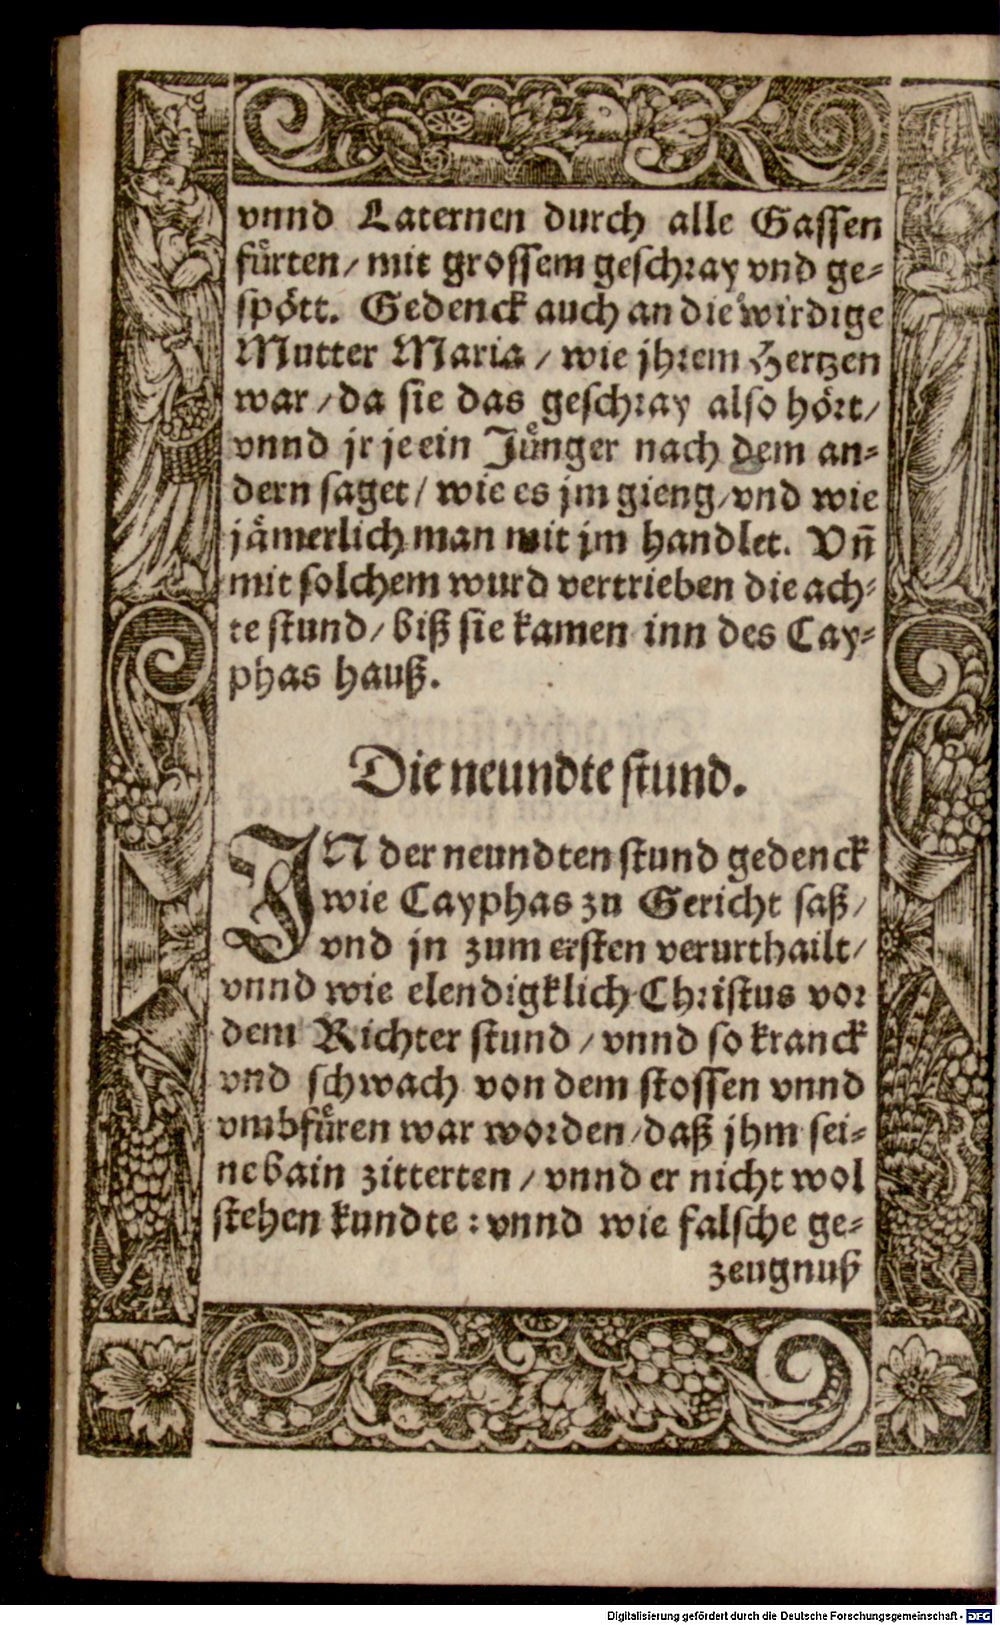 vnnd Laternen durch alle Gassen
fuͤrten / mit grossem geschray vnd ge-
spoͤtt. Gedenck auch an die wirdige
Mutter Maria / wie jhrem Hertzen
war / da sie das geschray also hoͤrt /
vnnd jr je ein Juͤnger nach dem an-
dern saget / wie es jm gieng / vnd wie
jaͤmerlich man mit jm handlet. Vñ
mit solchem wurd vertrieben die ach-
te stund / biß sie kamen inn des Cay-
phas hauß.
Die neundte stund.
IN der neundten stund gedenck
wie Cayphas zu Gericht saß /
vnd jn zum ersten verurthailt /
vnnd wie elendigklich Christus vor
dem Richter stund / vnnd so kranck
vnd schwach von dem stossen vnnd
vmbfuͤren war worden / daß jhm sei-
ne bain zitterten / vnnd er nicht wol
stehen kundte : vnnd wie falsche ge-
zeugnuß
Digitalisierung gefördert durch die Deutsche Forschungsgemeinschaft - DFG